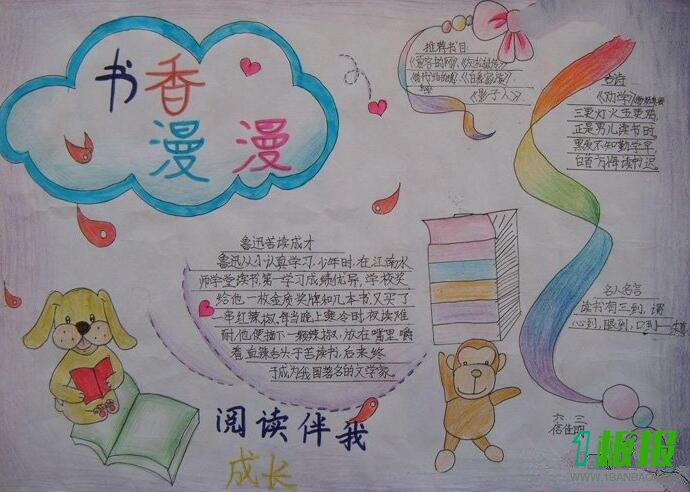 书香
漫漫
推荐书目
《影子人》
古诗
《劝学》
三更灯火五更鸡,
正是男儿读书时。
黑发不知勤学早,
白首方悔读书迟。
鲁迅苦读成才
鲁迅从小认真学习,少年时,在江南水
师学堂读书,第一学习成绩优异,学校奖
给他一枚金质奖牌和几本书又买了
一串红辣椒,每当晚上寒冷时夜读难
耐,他便摘下一颗辣椒,放在嘴里嚼
着,直辣
头于苦读书,后来终
于成为我国著名的文学家。
名人名言
读书有三到,谓
心到,眼到,口到——朱熹
阅读伴我
成长
六 三
1板报
WWW.1BANBAO.COM